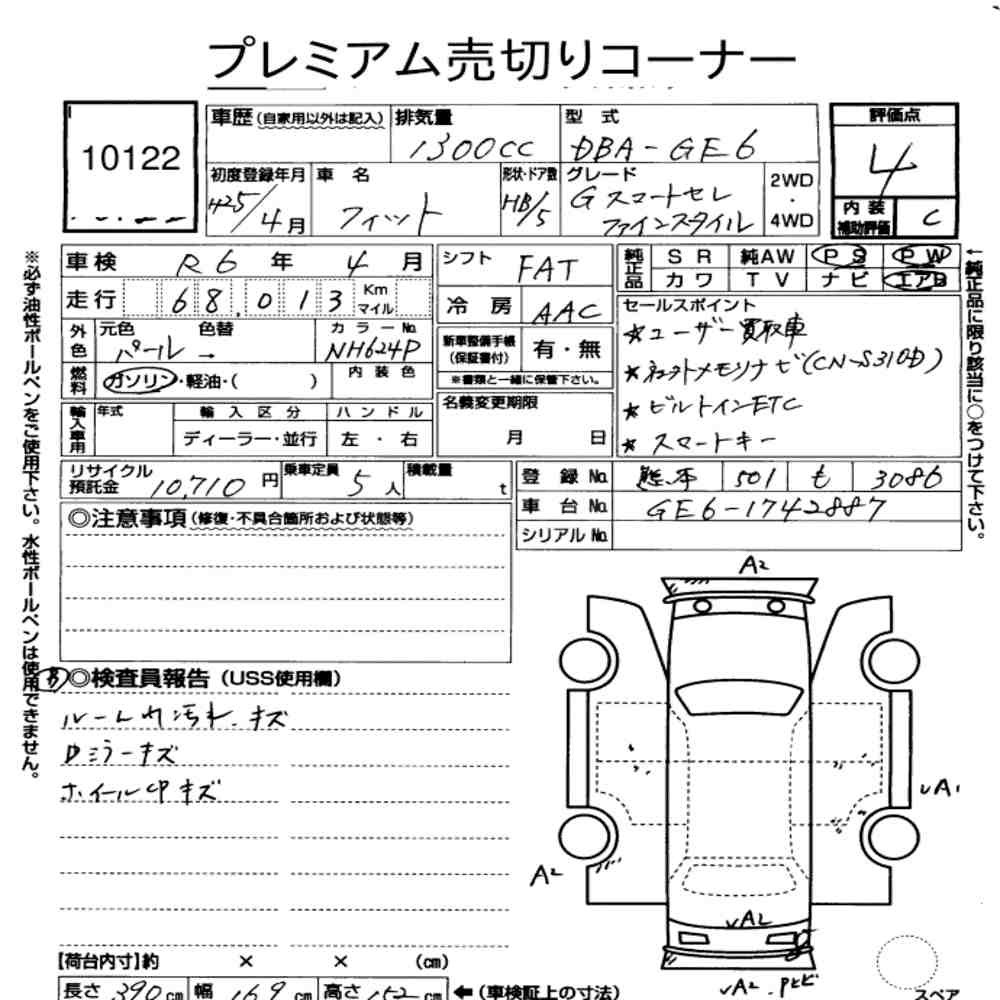 プレミアム売切りコーナー
10122
車歴（自家用以外は記入）
排気量
1300cc
型式
DBA-GE6
評価点
4
内装補助評価
C
初度登録年月
H25/4月
車名
フィット
形状・ドア数
HB/5
グレード
G スマートセレ
ファインスタイル
2WD
・
4WD
車検 R6年 4月
シフト
FAT
走行 68,013 Km マイル
冷房
AAC
純正品
SR 純AW PS PW
カワ TV ナビ エアB
外色
元色 色替
パール →
カラーNo.
NH624P
燃料
ガソリン・軽油・（ ）
内装色
新車整備手帳（保証書付）
有・無
※書類と一緒に保管下さい。
セールスポイント
★ユーザー買取車
★ネットメモリナビ(CN-S310D)
★ビルトインETC
★スマートキー
輸入車用
年式
輸入区分
ディーラー・並行
ハンドル
左・右
名義変更期限
月 日
リサイクル預託金
10,710円
乗車定員
5人
積載量
t
登録No. 熊本 501 も 3086
車台No. GE6-1742887
シリアルNo.
◎注意事項（修復・不具合箇所および状態等）
◎検査員報告（USS使用欄）
ルーム内汚れ.キズ
Dミラーキズ
ホイールCPキズ
【荷台内寸】約 × × （cm）
長さ390cm 幅169cm 高さ152cm ←（車検証上の寸法）
※必ず油性ボールペンをご使用下さい。水性ボールペンは使用できません。
←純正品に限り該当に○をつけて下さい。
A2
√A1
A2
√A2
√A2.Pヒビ
スペア